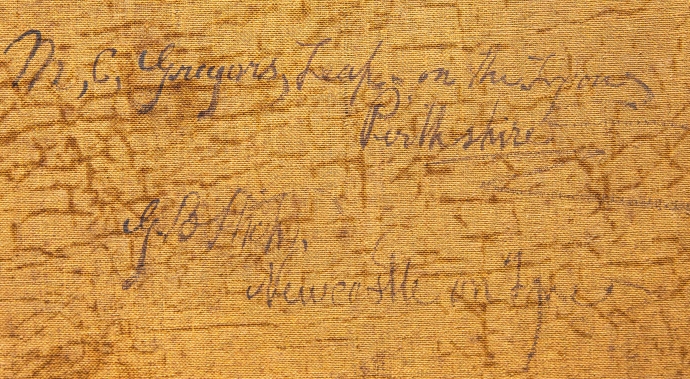 M, C, Gregors, Leap, on the Lyon
Perthshire
G. B.
Newcastle on Tyne